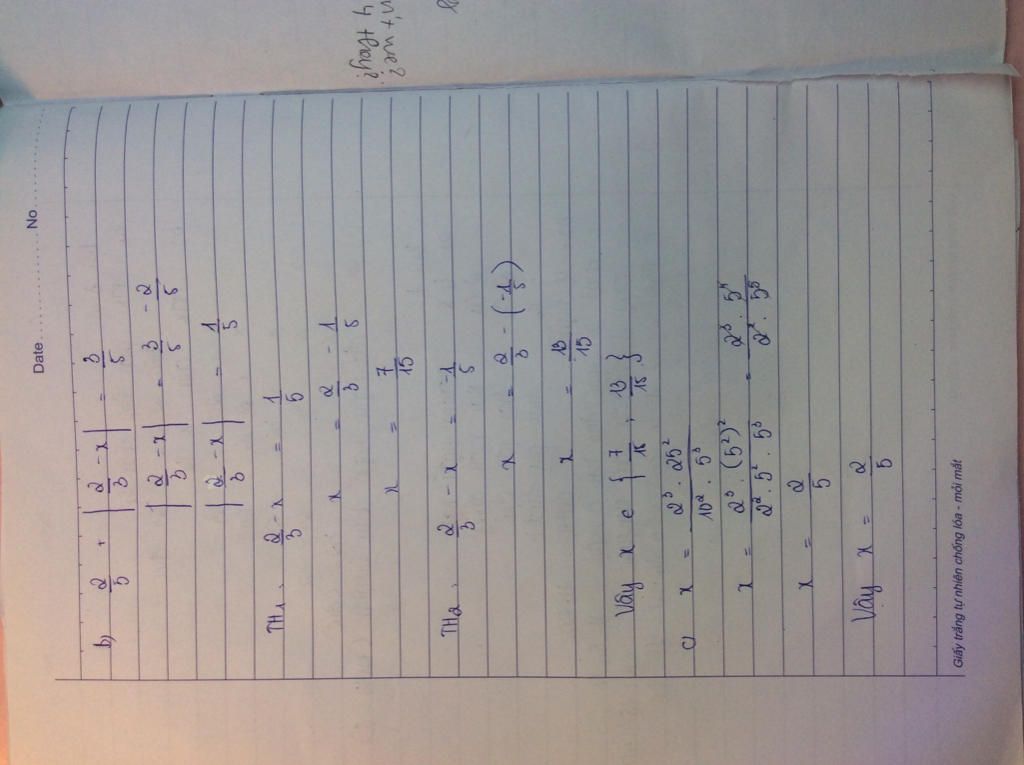 Date.............No..............
b) 2/5 + |2/3 - x| = 3/5
|2/3 - x| = 3/5 - 2/5
|2/3 - x| = 1/5
TH1. 2/3 - x = 1/5
x = 2/3 - 1/5
x = 7/15
TH2. 2/3 - x = -1/5
x = 2/3 - (-1/5)
x = 13/15
Vậy x ∈ {7/15, 13/15}
c) x = 2³ . 25² / 10² . 5³
x = 2³ . (5²)² / 2² . 5² . 5³ = 2³ . 5⁴ / 2² . 5⁵
x = 2/5
Vậy x = 2/5
Giấy trắng tự nhiên chống lóa - mỏi mắt